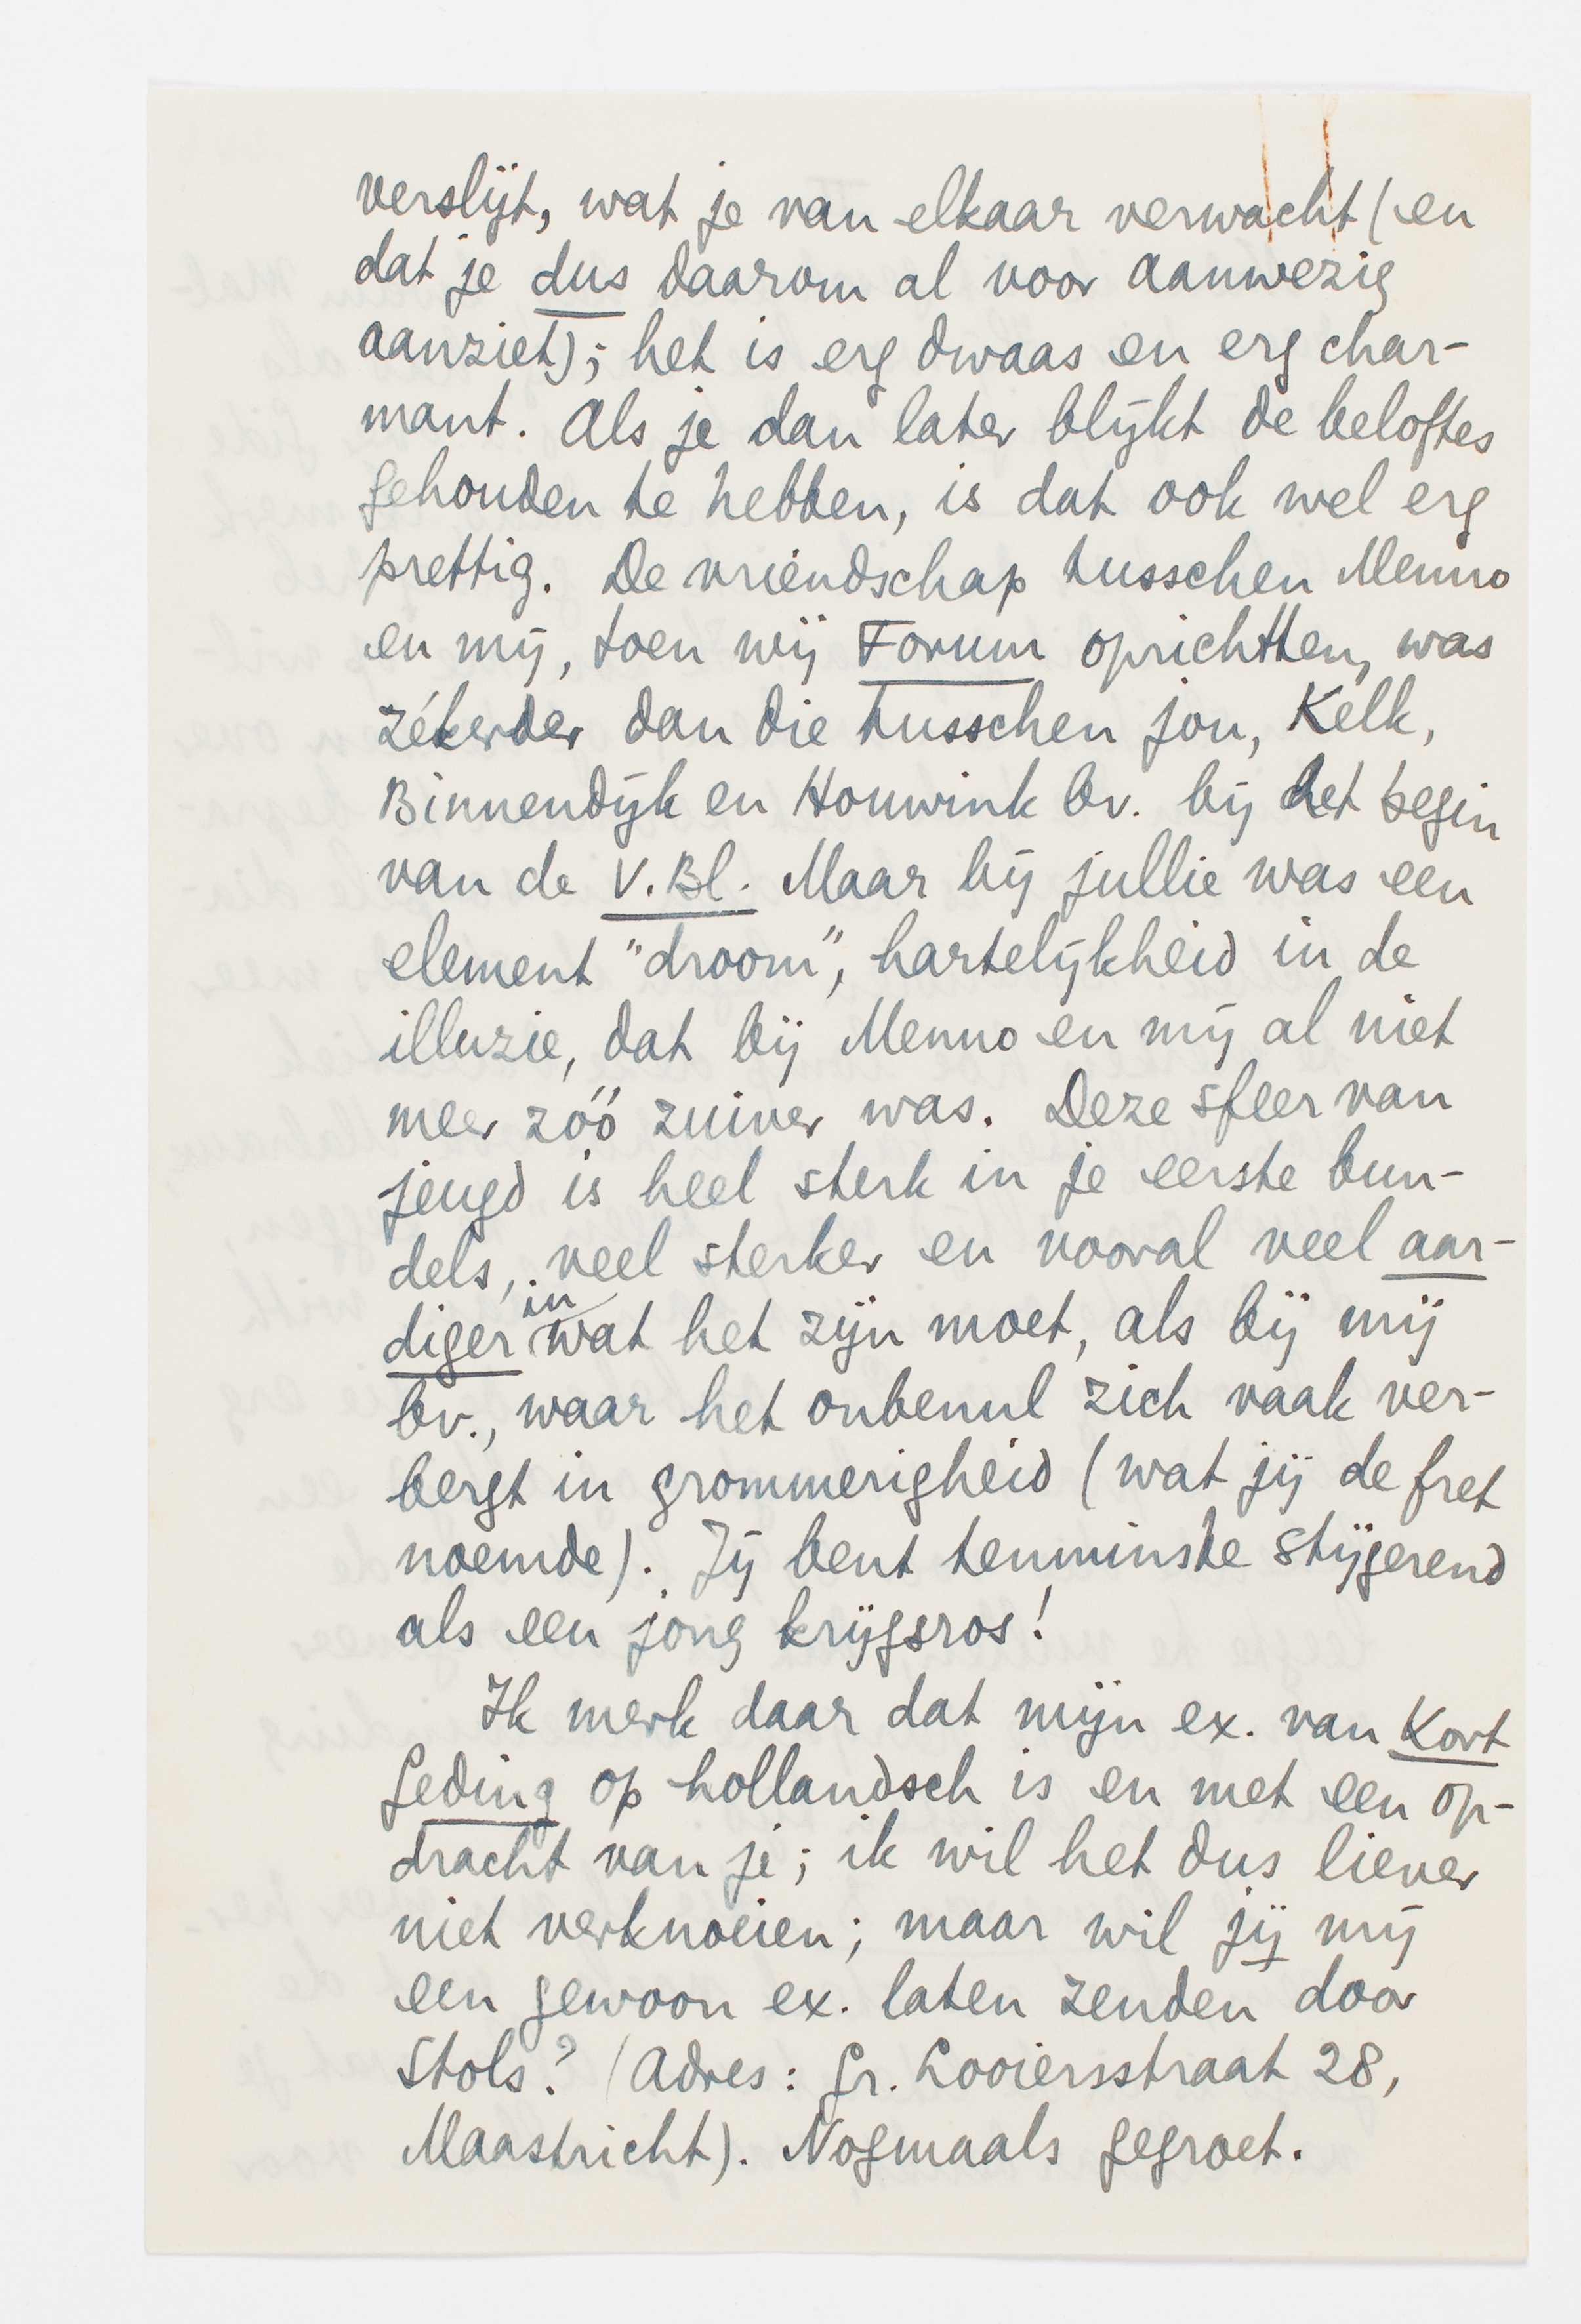 verslijt, wat je van elkaar verwacht (en
dat je dus daarom al voor aanwezig
aanziet); het is erg dwaas en erg char-
mant. Als je dan later blijkt de beloftes
gehouden te hebben, is dat ook wel erg
prettig. De vriendschap tusschen Menno
en mij, toen wij Forum oprichtten, was
zékerder dan die tusschen jou, Kelk,
Binnendijk en Houwink bv. bij het begin
van de V.Bl. Maar bij jullie was een
element "droom", hartelijkheid in de
illuzie, dat bij Menno en mij al niet
meer zóó zuiver was. Deze sfeer van
jeugd is heel sterk in je eerste bun-
dels, veel sterker en vooral veel aar-
diger in wat het zijn moet, als bij mij
bv., waar het onbenul zich vaak ver-
bergt in grommerigheid (wat jij de fret
noemde). Jij bent tenminste stijgerend
als een jong krijgsros!
Ik merk daar dat mijn ex. van Kort
Geding op hollandsch is en met een op-
dracht van je; ik wil het dus liever
niet verknoeien; maar wil jij mij
een gewoon ex. laten zenden door
Stols? (Adres: Gr. Looiersstraat 28,
Maastricht). Nogmaals gegroet.